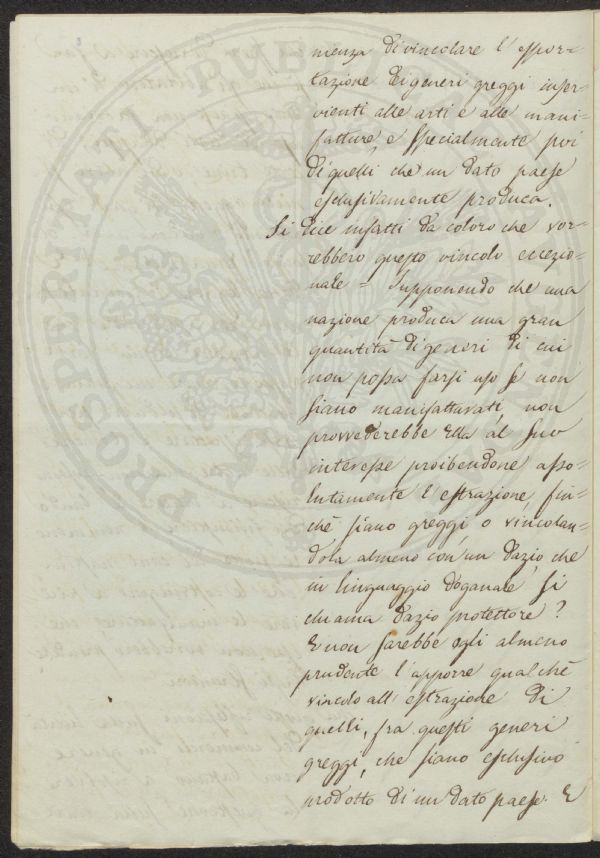 nienza di vincolare l'esportazione
di generi greggi inser-
vienti alle arti e alle mani-
fatture e specialmente poi
di quelli che un dato paese
esclusivamente produca.
Si dice infatti da coloro che vor-
rebbero questo vincolo eccezio-
nale = Supponendo che una
nazione produca una gran
quantità di generi di cui
non possa farsi uso se non
siano manifatturati, non
provvederebbe Ella al suo
interesse proibendone asso-
lutamente l'estrazione, fin-
chè siano greggi o vincolan-
dola almeno con un dazio che
in linguaggio doganale si
chiama dazio protettore?
E non sarebbe egli almeno
prudente l'apporre qualche
vincolo all'estrazione di
quelli, fra questi generi
greggi, che siano esclusivo
prodotto di un dato paese. E
PROSPERITATI PUBLICAE